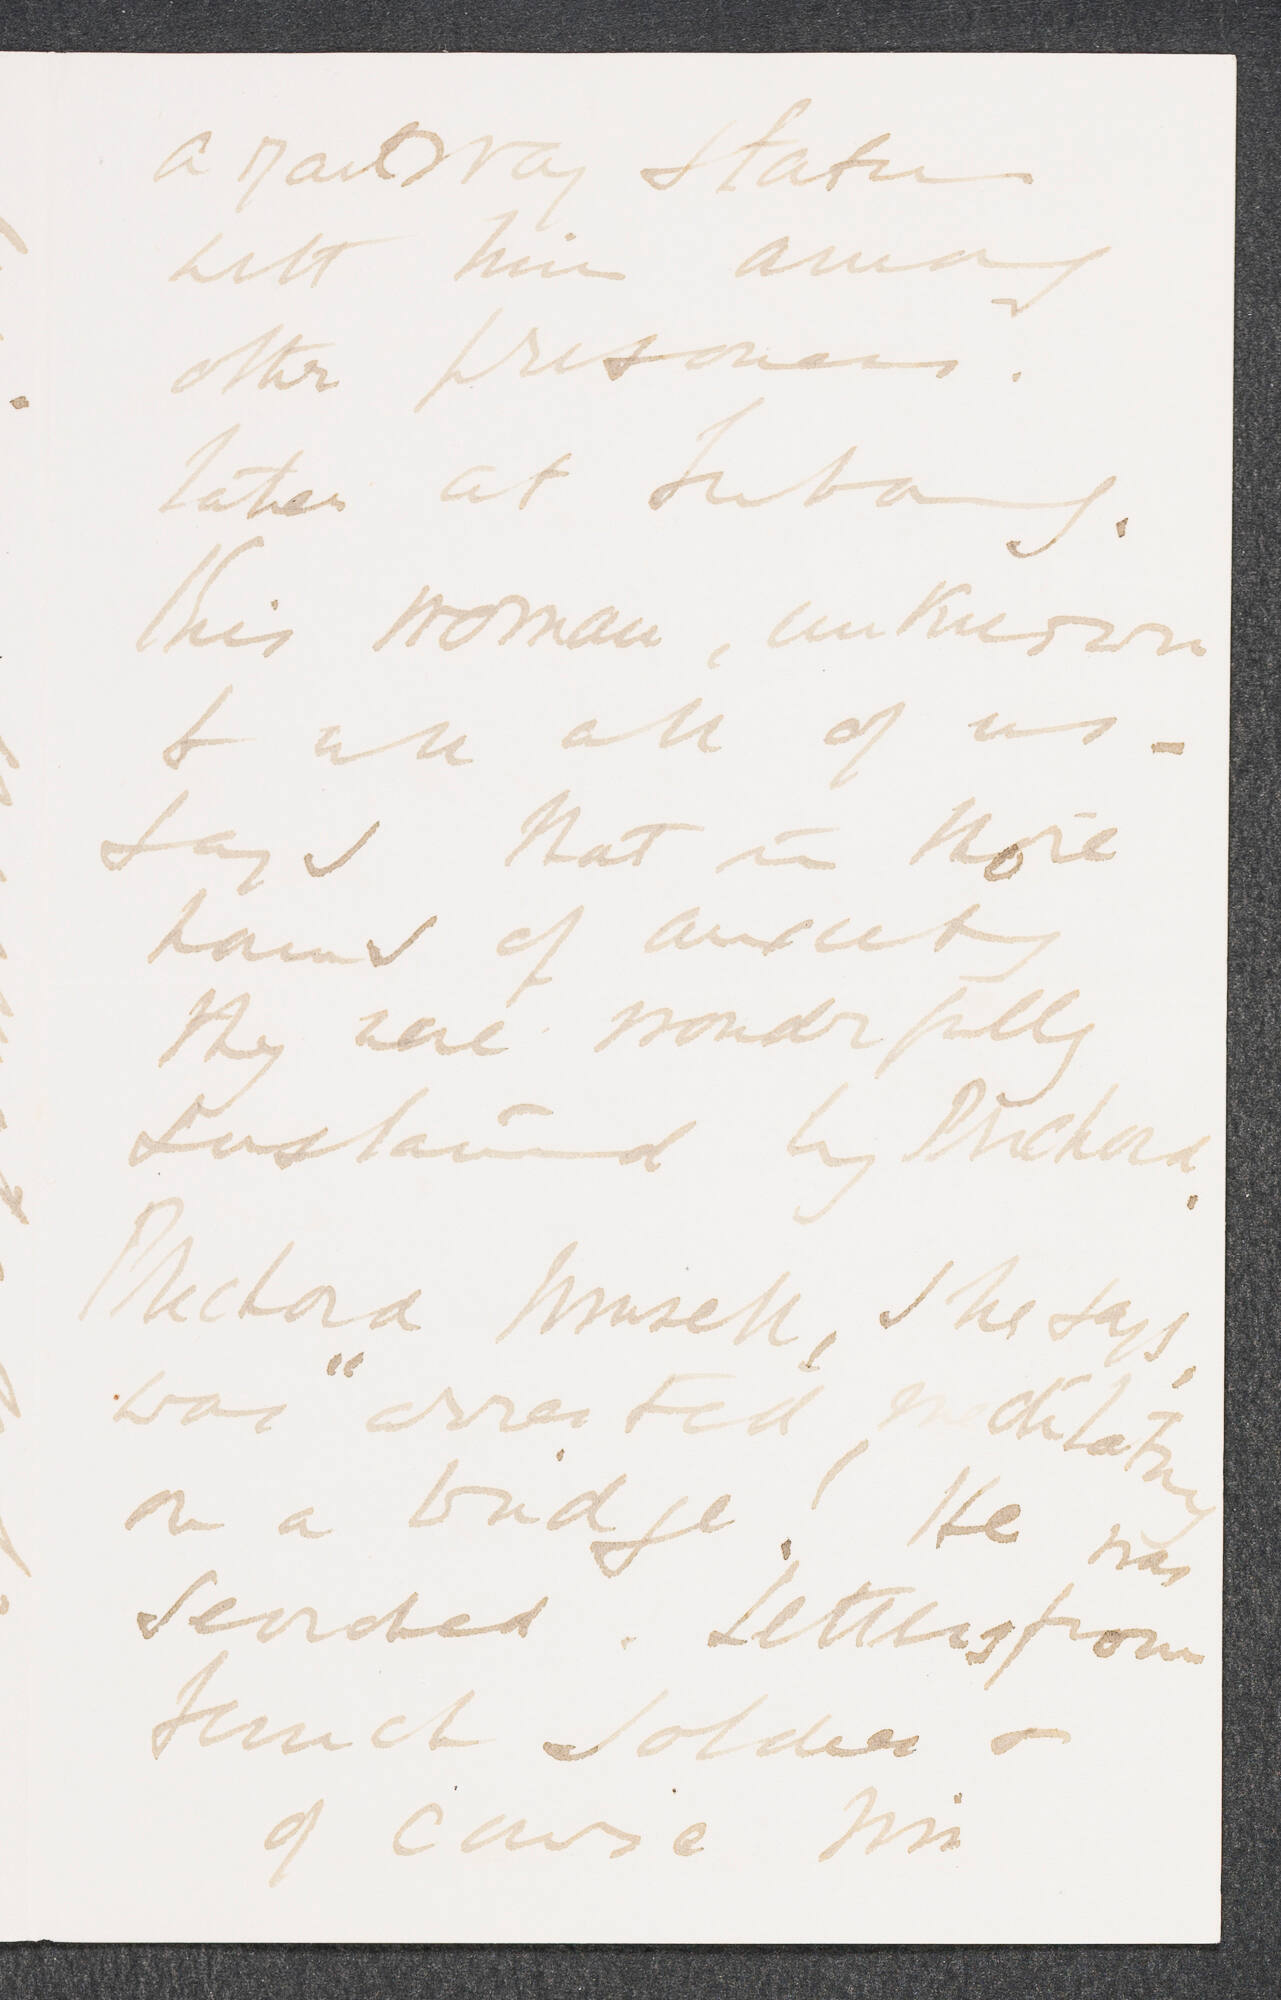 a railway station
with him among
other prisoners.
Later at
This woman, unknown
to all of us -
says that in those
hours of anxiety
they were wonderfully
sustained by Prichard.
Prichard himself, she says,
was "arrested, meditating
on a bridge! He was
searched. Letters from
French soldier &
of course his